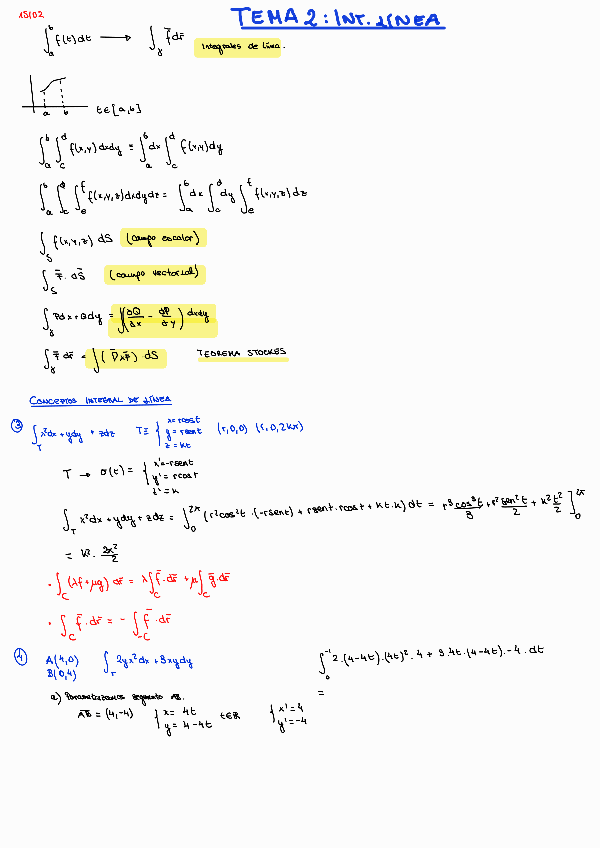 15/02
TEMA 2: INT. LÍNEA
∫_a^b f(t)dt → ∫_γ f̄dr̄ Integrales de línea.
a b t∈[a,b]
∫_a^b ∫_c^d f(x,y) dxdy = ∫_a^b dx ∫_c^d f(x,y)dy
∫_a^b ∫_c^d ∫_e^f f(x,y,z)dxdydz = ∫_a^b dx ∫_c^d dy ∫_e^f f(x,y,z) dz
∫_S f(x,y,z) dS (campo escalar)
∫_S F̄. dS̄ (campo vectorial)
∫_γ Pdx+Qdy = ∬(∂Q/∂x - ∂P/∂y) dxdy
∫_γ F̄ dr̄ = ∫(∇̄xF̄) dS TEOREMA STOCKES
CONCEPTOS INTEGRAL DE LÍNEA
③ ∫_T x²dx + ydy + zdz T≡ { x=rcost y=rsent z=kt (r,0,0) (r,0,2kπ)
T → σ(t) = { x'=-rsent y'=rcost z'=k
∫_T x²dx+ydy+zdz = ∫_0^2π (r²cos²t.(-rsent) + rsent.rcost + kt.k) dt = r³cos³t/3 + r²sen²t/2 + k²t²/2 ]_0^2π
= k². 2π²/2
• ∫_C (λf+μg) dr̄ = λ∫_C f̄.dr̄ + μ∫_C ḡ.dr̄
• ∫_C f̄.dr̄ = - ∫_-C f̄.dr̄
④ A(4,0) B(0,4) ∫_T 2yx²dx+3xydy
a) Parametrizamos segmento AB.
AB = (4,-4) { x= 4t y= 4-4t t∈ℝ { x'=4 y'=-4
∫_0^-1 2.(4-4t).(4t)². 4 + 3.4t.(4-4t).-4 . dt
=